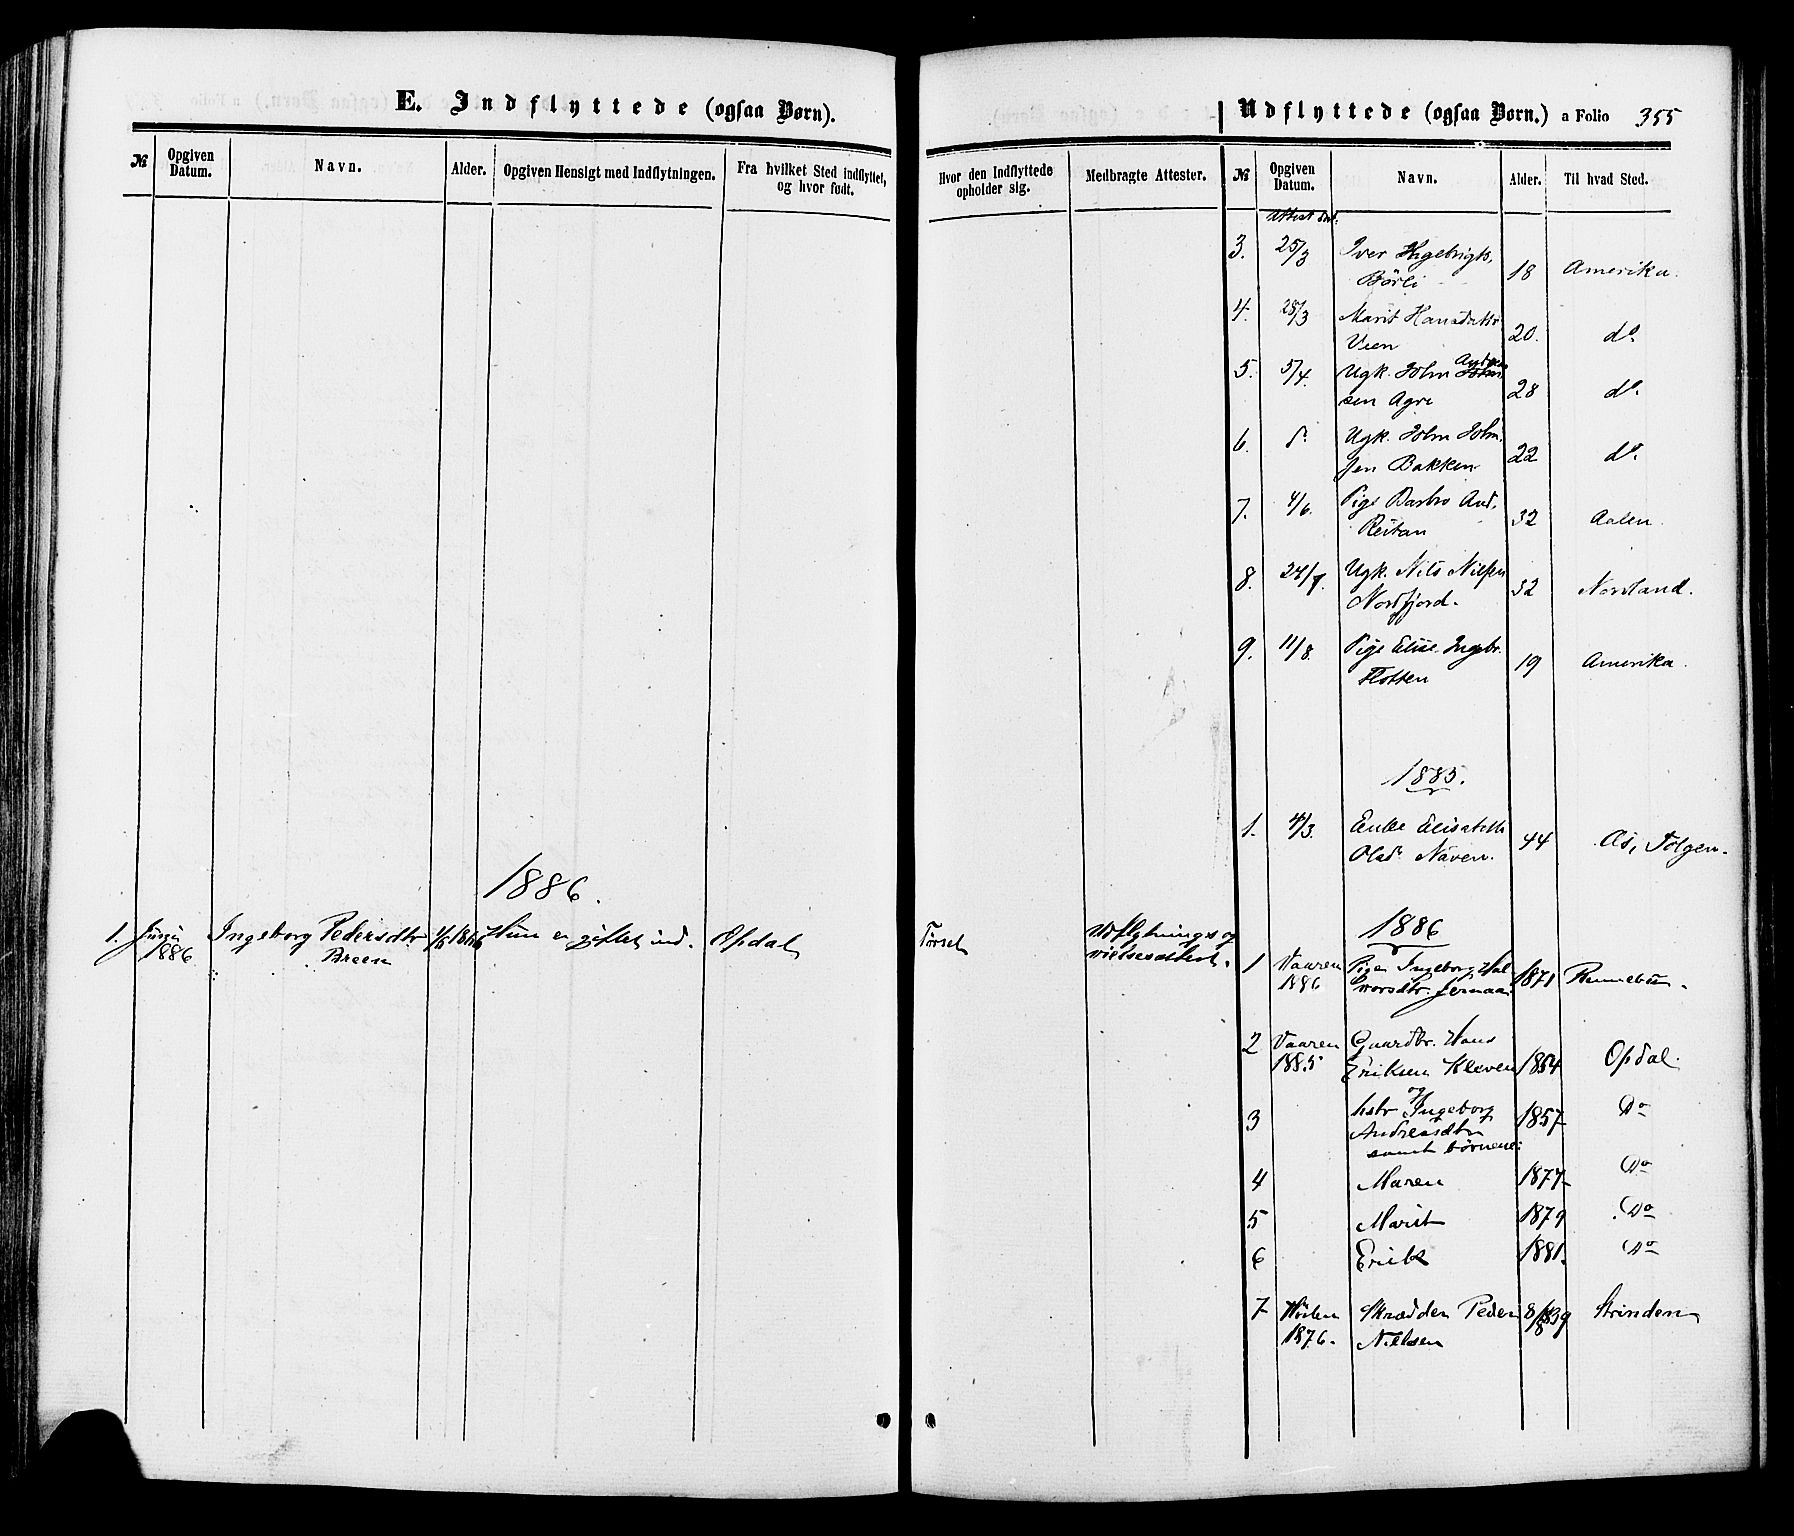 E. Indflyttede (ogsaa Børn).
№ Opgiven Datum. Navn. Alder. Opgiven Hensigt med Indflytningen. Fra hvilket Sted indflyttet, og hvor født.
1886.
1. 1886 Ingeborg Pedersdtr Hun er giftet ind. Opdal
Breen
Udflyttede (ogsaa Børn.) a Folio 355
Hvor den Indflyttede opholder sig. Medbragte Attester. № Opgiven Datum. Navn. Alder. Til hvad Sted.
Attest dat.
3. 25/3 Iver Ingebrigts.
Börli 18 Amerika.
4. 28/3 Marit Hansdatter
Veen 20. do.
5. 5/4. Ugk. John
sen Agre 28 do.
6. Ugk. John John
sen Bakken 22 do.
7. 4/6. Pige Barbro And.
Reitan 32 Aalen.
8. 24/7. Ugk. Nils Nilsen
Nordfjord. 32 Nordland.
9. 11/8. Pige Elise Ingebr.
Flotten 19 Amerika.
1885.
1. 4/3. Enke Elisabeth
Olsdr. Näven. 44 Os, Tolgen.
Udflytnings og
vielsesattest.
1886
1 Vaaren 1886 Pigen Ingeborg Hal
vorsdtr. 1871 Rennebu.
2 Vaaren 1885 Gaardbr. Hans
Eriksen Kleven 1854 Opdal.
og
3 hstr Ingeborg
Andreasdtr 1857 Do
samt børnene:
4 Maren 1877 Do
5 Marit 1879 Do
6 Erik 1881. Do
7 Høsten 1876. Skrædder Peder 8/8 1839 Strinden
Nielsen